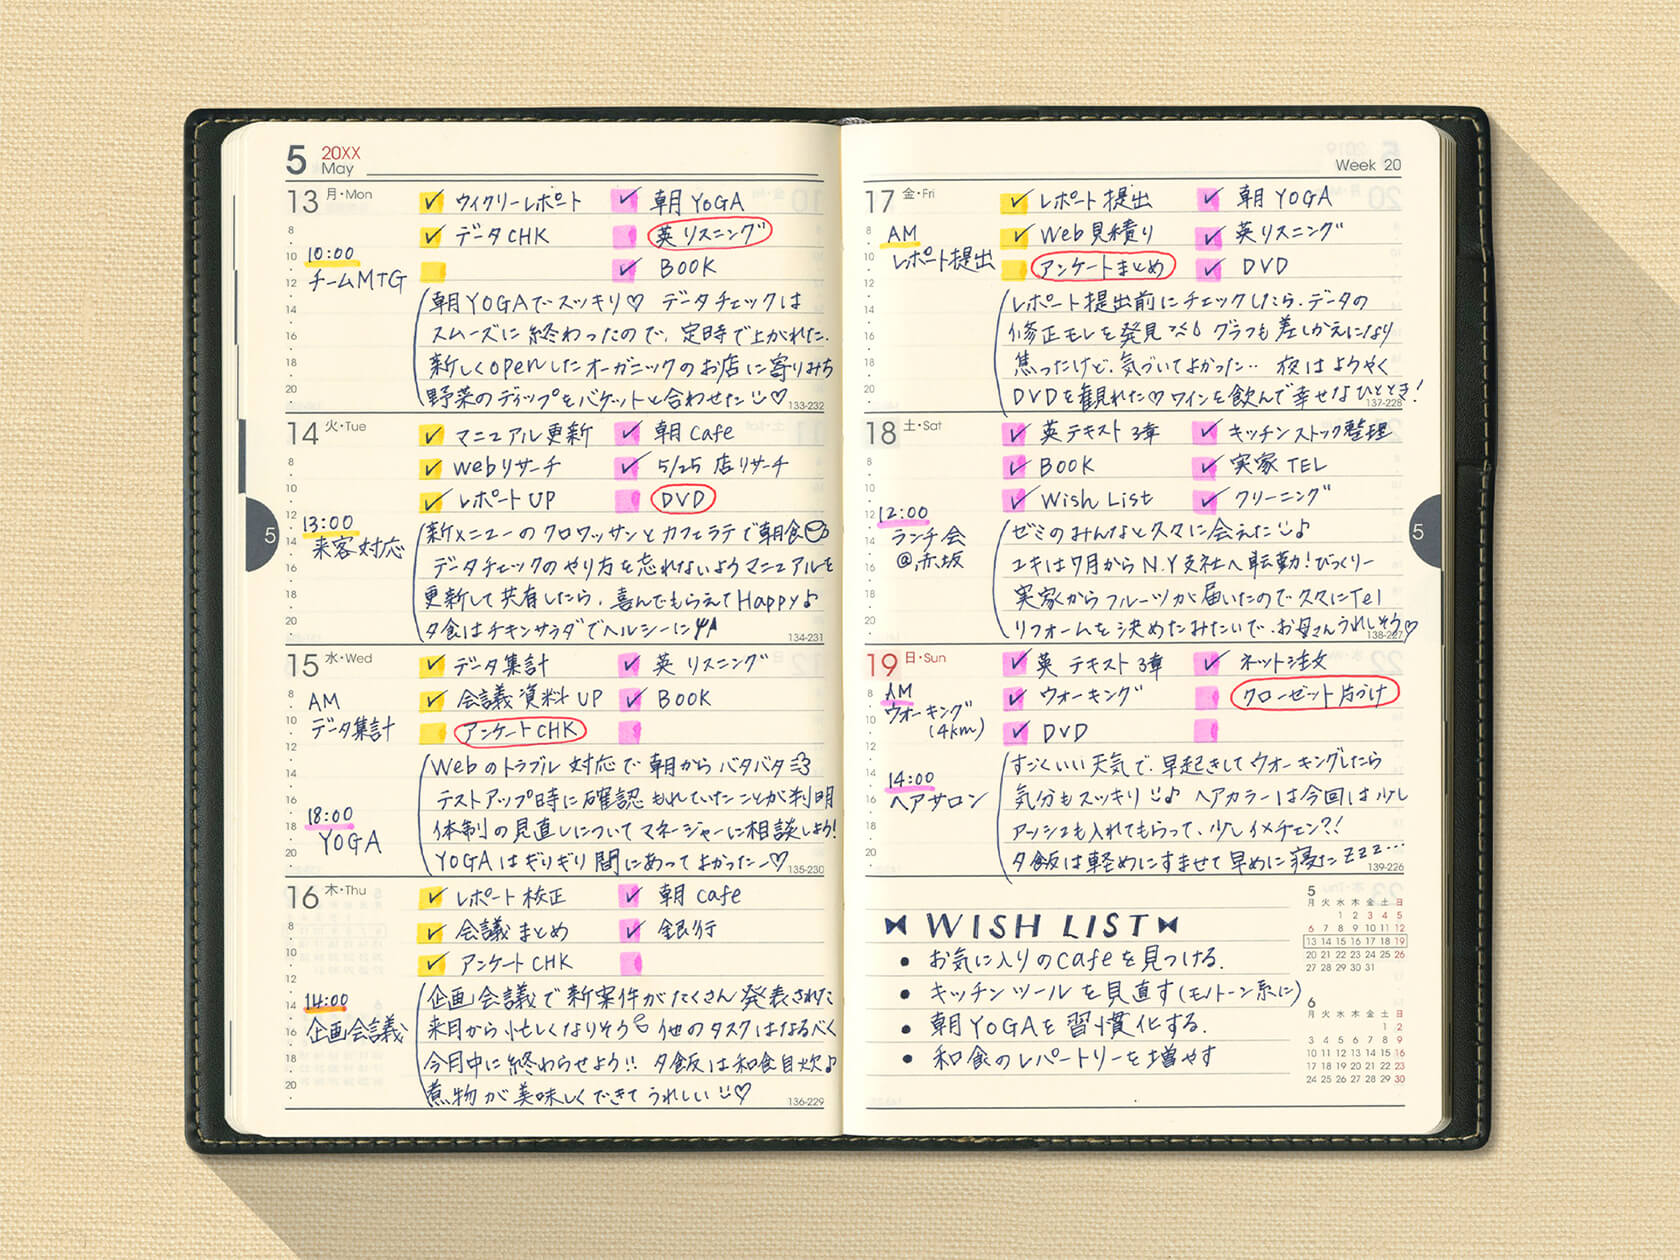 5 20XX May
13 月・Mon
ウィクリーレポート 朝YOGA
データCHK 英リスニング
BOOK
10:00
チームMTG
朝YOGAでスッキリ♡ データチェックは
スムーズに終わったので、定時で上がれた.
新しくopenしたオーガニックのお店に寄りみち
野菜のディップをバゲットと合わせた♡
8
10
12
14
16
18
20
133-232
14 火・Tue
マニュアル更新 朝cafe
webリサーチ 5/25 店リサーチ
レポートUP DVD
13:00
来客対応
新メニューのクロワッサンとカフェラテで朝食
データチェックのやり方を忘れないようマニュアルを
更新して共有したら、喜んでもらえてHappy♪
夕食はチキンサラダでヘルシーに
8
10
12
14
16
18
20
134-231
5
15 水・Wed
データ集計 英リスニング
会議資料UP BOOK
アンケートCHK
AM
データ集計
18:00
YOGA
Webのトラブル対応で朝からバタバタ
テストアップ時に確認もれていたことが判明
体制の見直しについてマネージャーに相談しよう!
YOGAはぎりぎり間にあってよかったー♡
8
10
12
14
16
18
20
135-230
16 木・Thu
レポート校正 朝cafe
会議まとめ 銀行
アンケートCHK
14:00
企画会議
企画会議で新案件がたくさん発表された
来月から忙しくなりそう 他のタスクはなるべく
今月中に終わらせよう!! 夕飯は和食自炊♪
煮物が美味しくできてうれしい♡
8
10
12
14
16
18
20
136-229
Week 20
17 金・Fri
レポート提出 朝YOGA
Web見積り 英リスニング
アンケートまとめ DVD
AM
レポート提出
レポート提出前にチェックしたら、データの
修正モレを発見 グラフも差しかえになり
焦ったけど、気づいてよかった… 夜はようやく
DVDを観れた♡ワインを飲んで幸せなひととき!
8
10
12
14
16
18
20
137-228
18 土・Sat
英テキスト3章 キッチンストック整理
BOOK 実家TEL
Wish List クリーニング
12:00
ランチ会
@赤坂
ゼミのみんなと久々に会えた♪
ユキは7月からN.Y支社へ転勤!びっくりー
実家からフルーツが届いたので久々にTel
リフォームを決めたみたいで、お母さんうれしそう♡
8
10
12
14
16
18
20
138-227
5
19 日・Sun
英テキスト3章 ネット注文
ウォーキング クローゼット片づけ
DVD
AM
ウォーキング
(4km)
14:00
ヘアサロン
すごくいい天気で、早起きしてウォーキングしたら
気分もスッキリ♪ ヘアカラーは今回は少し
アッシュも入れてもらって、少しイメチェン?!
夕飯は軽めにすませて早めに寝たzzz…
8
10
12
14
16
18
20
139-226
WISH LIST
• お気に入りのcafeを見つける.
• キッチンツールを見直す(モノトーン系に)
• 朝YOGAを習慣化する.
• 和食のレパートリーを増やす
5
月 火 水 木 金 土 日
1 2 3 4 5
6 7 8 9 10 11 12
13 14 15 16 17 18 19
20 21 22 23 24 25 26
27 28 29 30 31
6
月 火 水 木 金 土 日
1 2
3 4 5 6 7 8 9
10 11 12 13 14 15 16
17 18 19 20 21 22 23
24 25 26 27 28 29 30